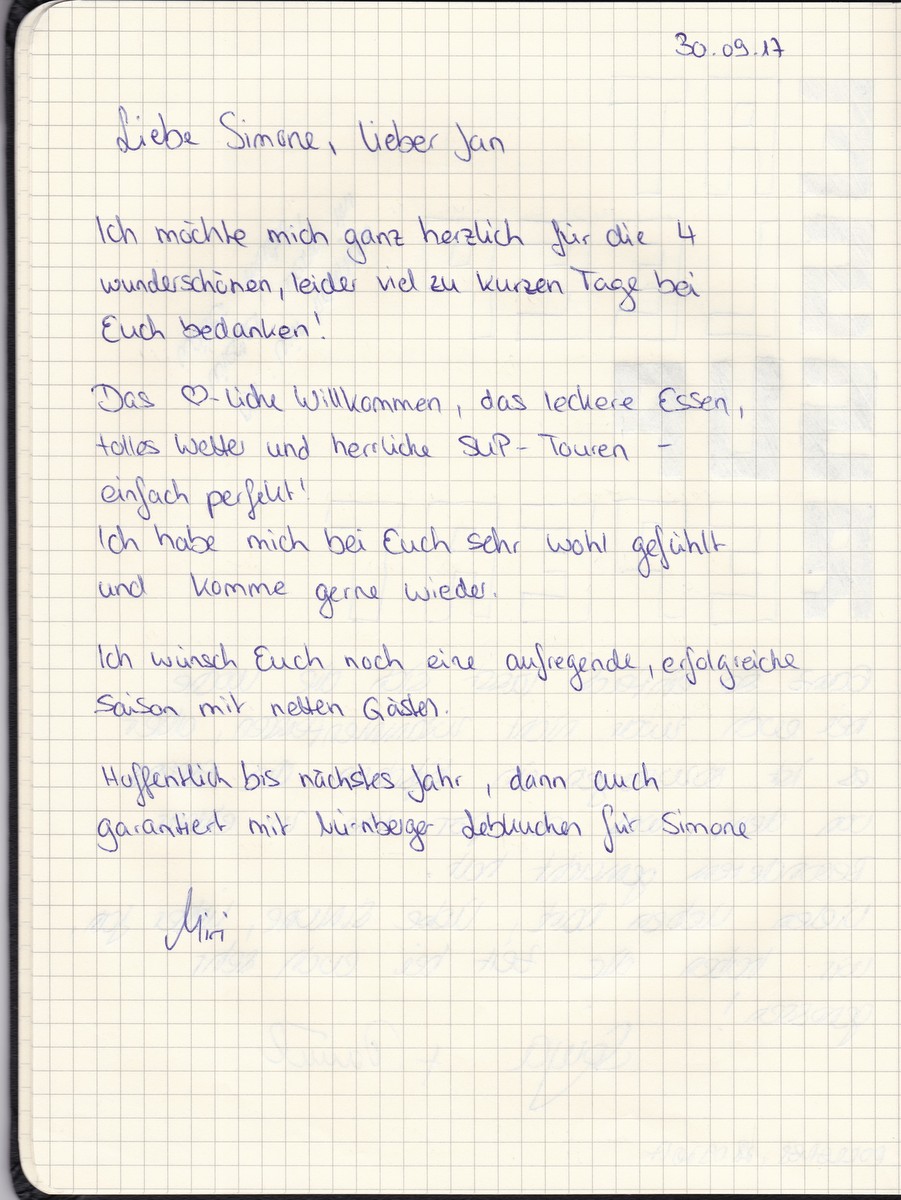 30.09.17
Liebe Simone, lieber Jan
Ich möchte mich ganz herzlich für die 4
wunderschönen, leider viel zu kurzen Tage bei
Euch bedanken!
Das ♡-liche Willkommen, das leckere Essen,
tolles Wetter und herrliche SUP-Touren -
einfach perfekt!
Ich habe mich bei Euch sehr wohl gefühlt
und komme gerne wieder.
Ich wünsch Euch noch eine aufregende, erfolgreiche
Saison mit netten Gästen.
Hoffentlich bis nächstes Jahr, dann auch
garantiert mit Nürnberger Lebkuchen für Simone
Miri